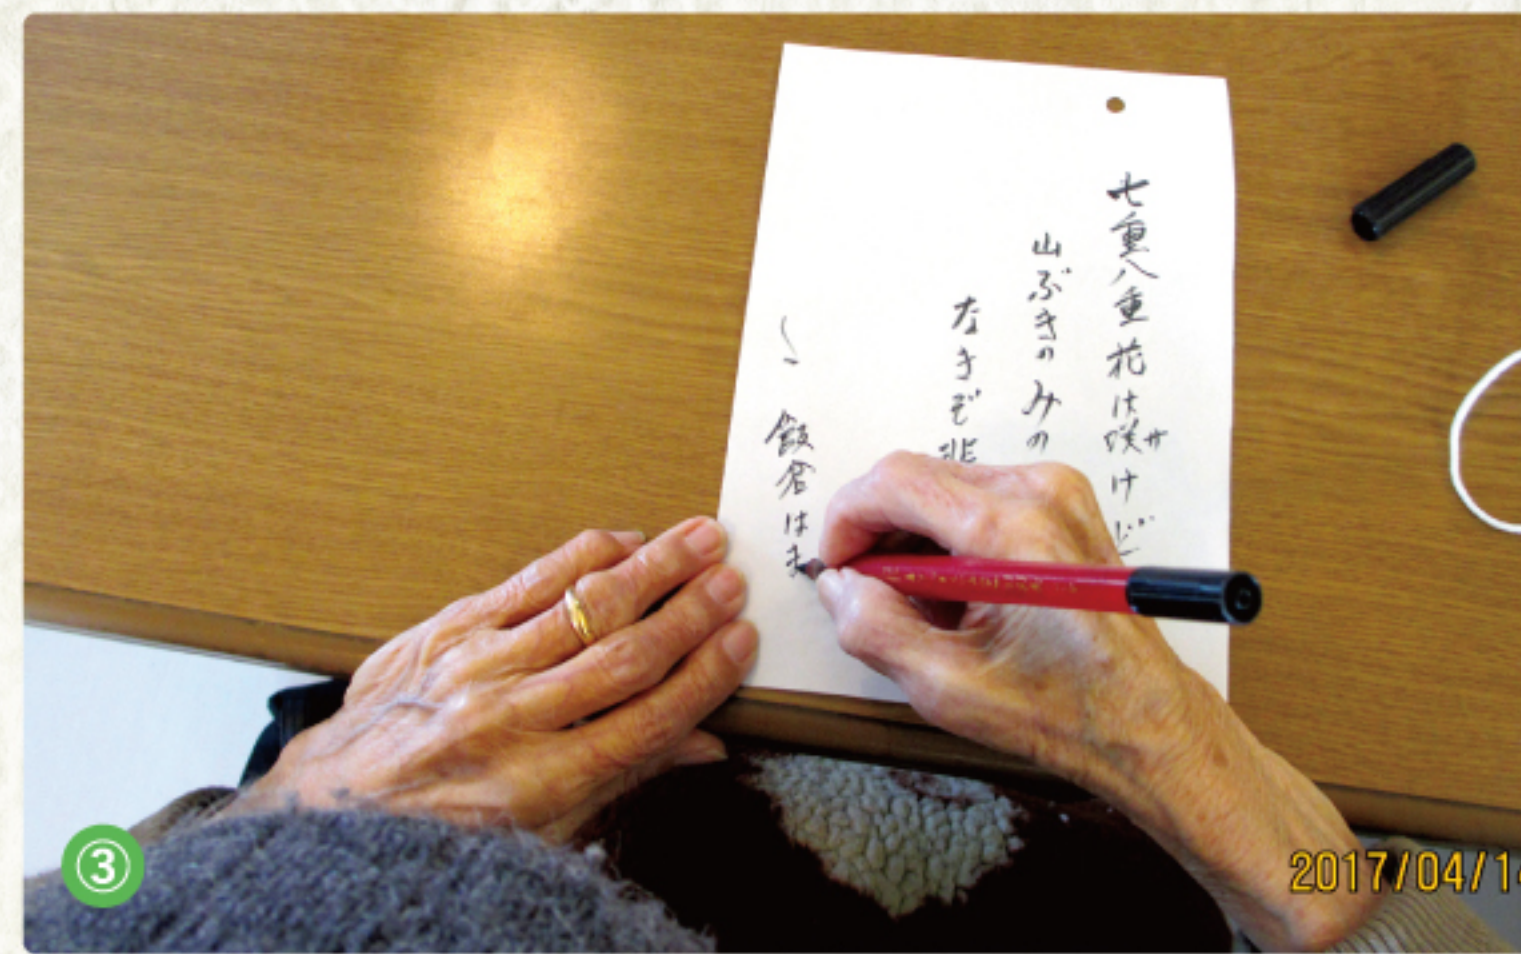 七重八重花は咲けど
サ
山ぶきのみの
なきぞ悲
飯倉はま
③
2017/04/14